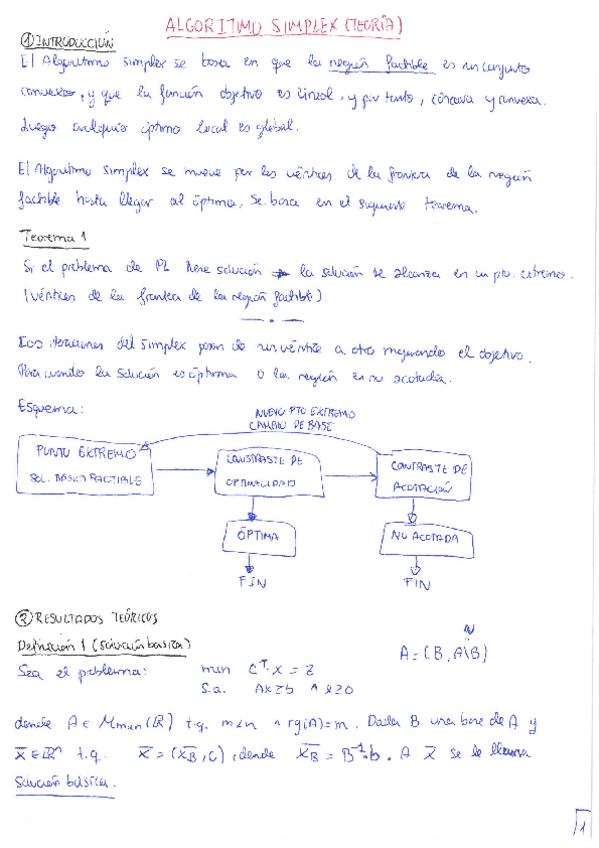 ALGORITMO SIMPLEX (TEORÍA)
① INTRODUCCIÓN
El Algoritmo simplex se basa en que la región factible es un conjunto
convexo, y que la función objetivo es lineal, y por tanto, cóncava y convexa.
Luego cualquier óptimo local es global.
El Algoritmo simplex se mueve por los vértices de la frontera de la región
factible hasta llegar al óptimo. Se basa en el siguiente teorema.
Teorema 1
Si el problema de PL tiene solución la solución se alcanza en un pto. extremo.
(vértices de la frontera de la región factible).
Las iteraciones del simplex pasan de un vértice a otro mejorando el objetivo.
Para cuando la solución es óptima o la región es no acotada.
Esquema:
NUEVO PTO EXTREMO
CAMBIO DE BASE
PUNTO EXTREMO
SOL. BÁSICA FACTIBLE
CONTRASTE DE
OPTIMALIDAD
CONTRASTE DE
ACOTACIÓN
ÓPTIMA
NO ACOTADA
FIN
FIN
② RESULTADOS TEÓRICOS
Definición 1 (Solución básica)
N
A = (B, A\B)
Sea el problema: min Cᵀ·X = Z
s.a. AX ≥ b ∧ x ≥ 0
donde A ∈ Mmxn(ℝ) t.q. m≤n ∧ rg(A)=m. Dada B una base de A y
X̄ ∈ ℝⁿ t.q. X̄ = (X̄_B, 0), donde X̄_B = B⁻¹·b. A X̄ se le llama
Solución básica.
1